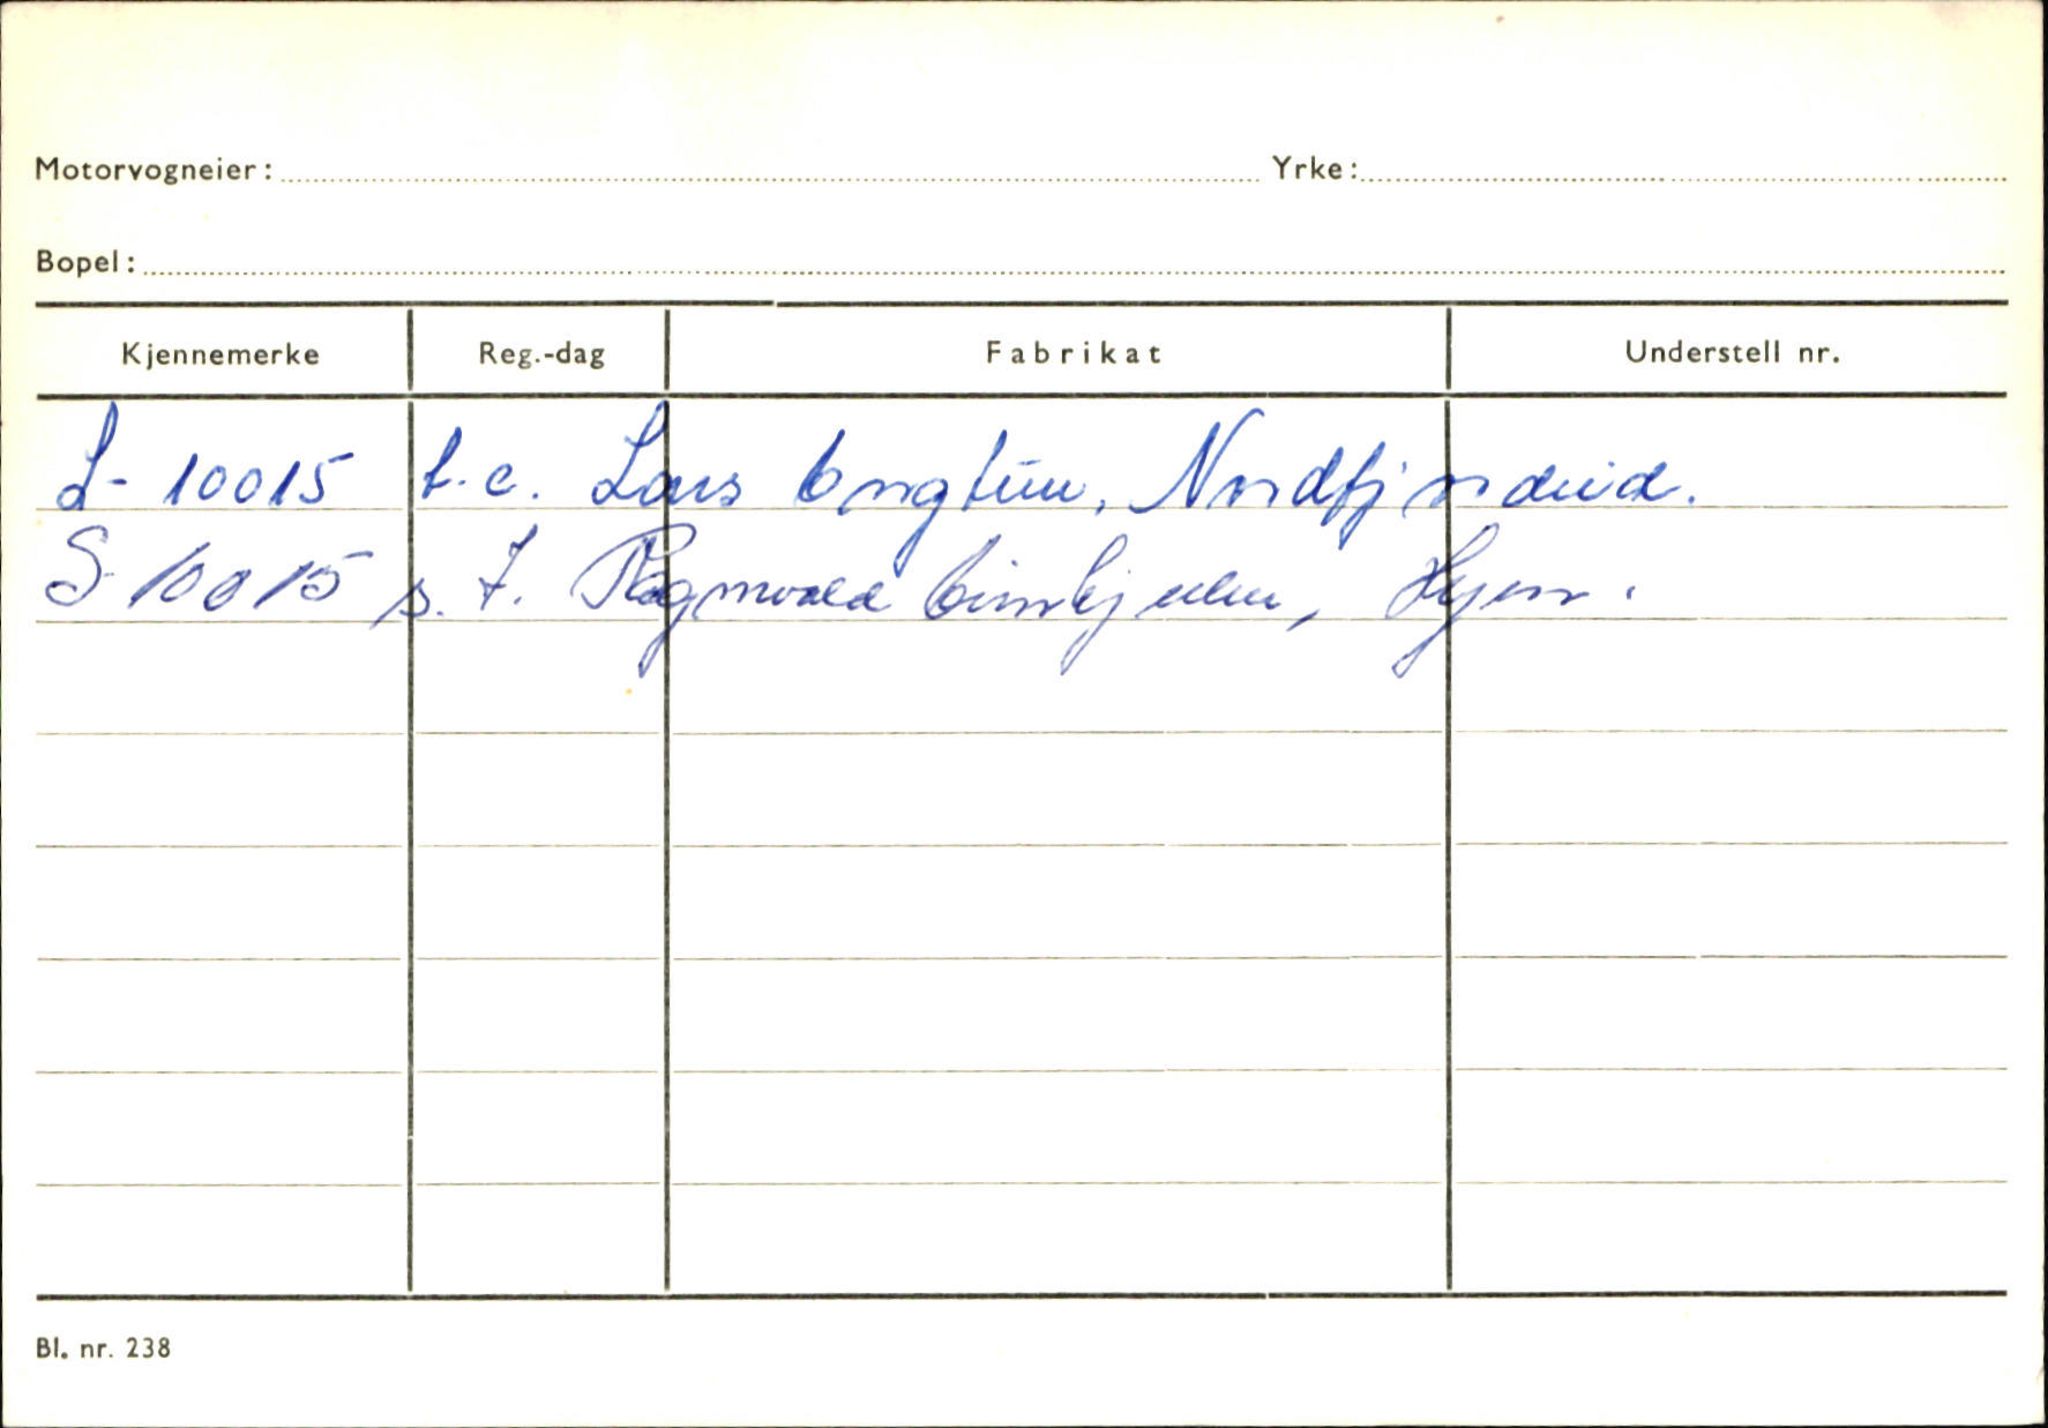 Motorvogneier: Yrke:
Bopel:
Kjennemerke Reg.-dag Fabrikat Understell nr.
S-10015 t.e. Lars Engtun, Nordfjordeid.
S-10015 s. t. Ragnvald Eimhjellen, Hyen.
Bl. nr. 238